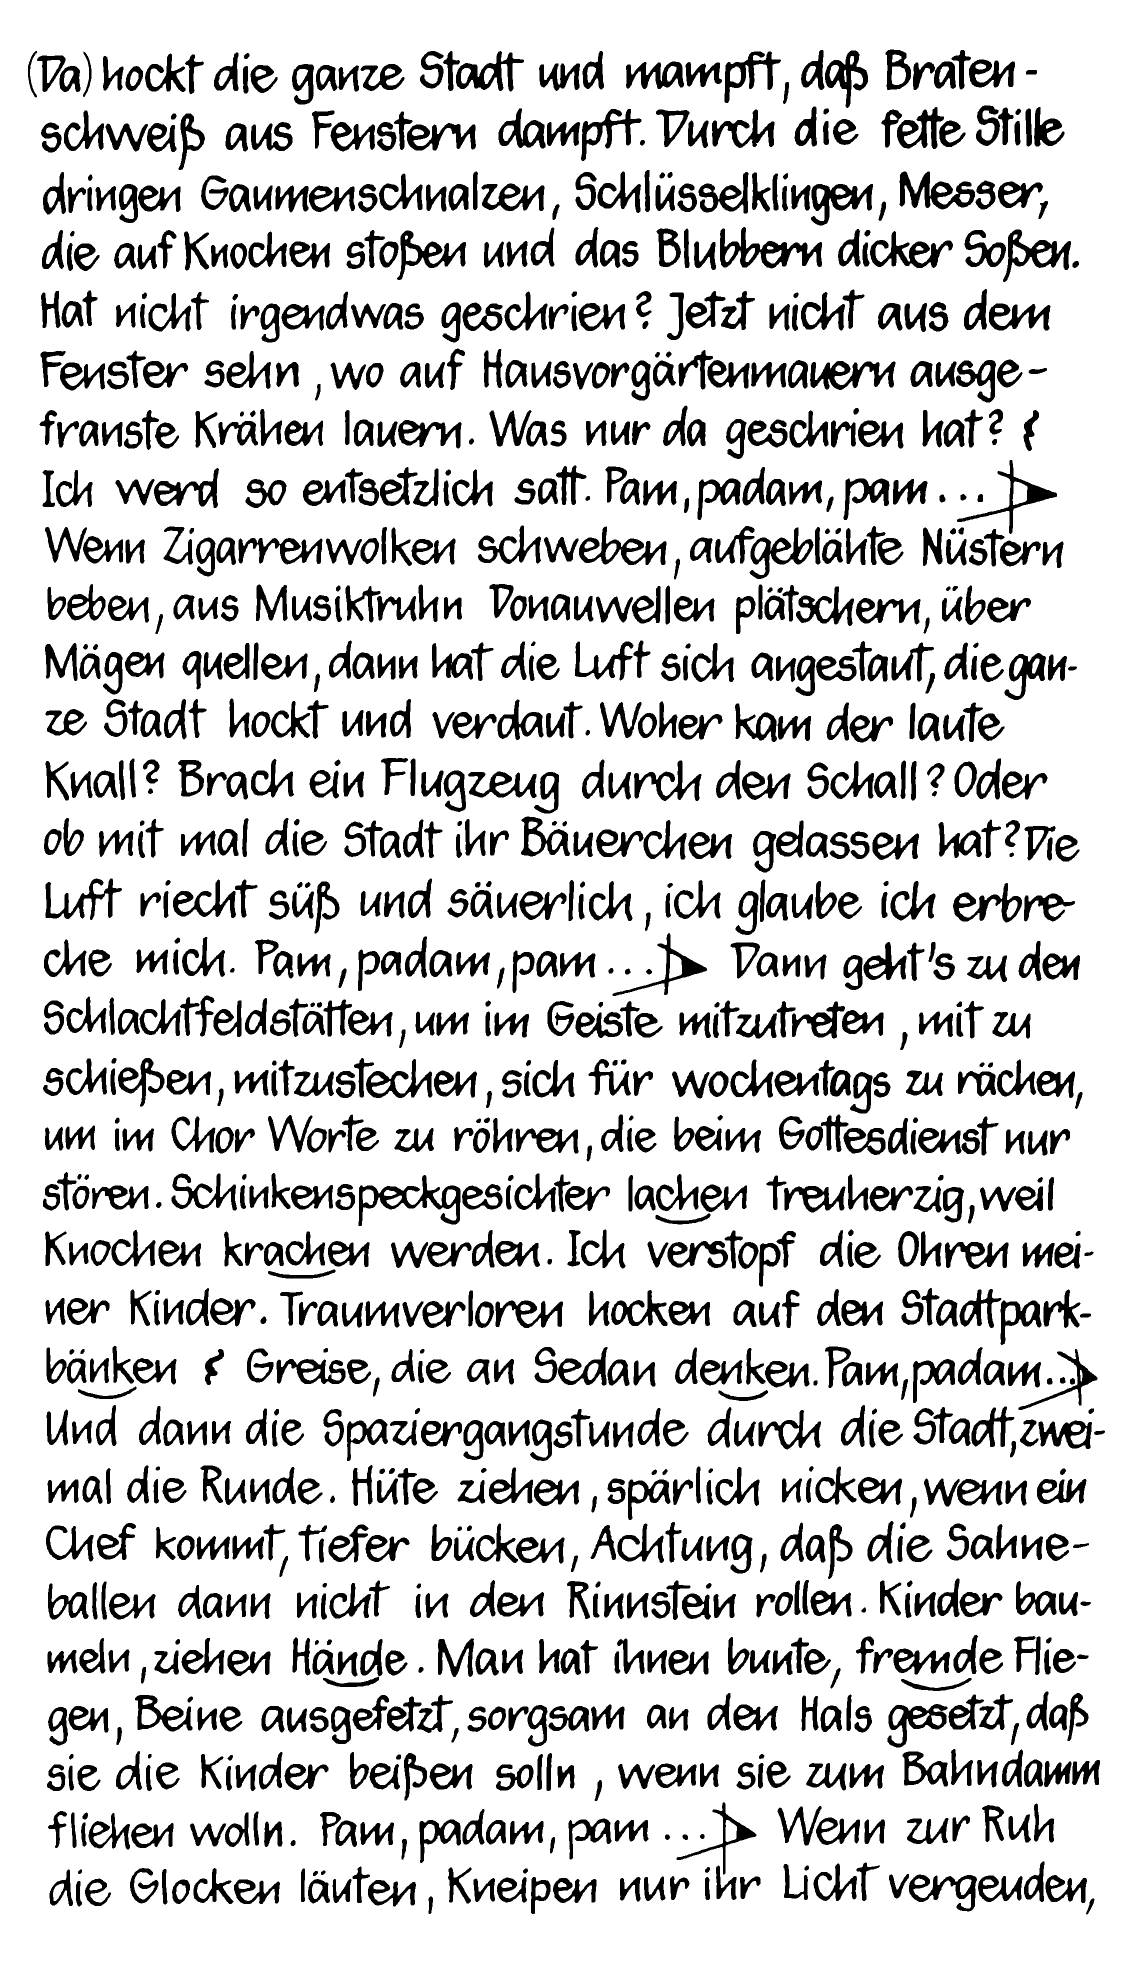 (Da) hockt die ganze Stadt und mampft, daß Braten-
schweiß aus Fenstern dampft. Durch die fette Stille
dringen Gaumenschnalzen, Schlüsselklingen, Messer,
die auf Knochen stoßen und das Blubbern dicker Soßen.
Hat nicht irgendwas geschrien? Jetzt nicht aus dem
Fenster sehn, wo auf Hausvorgärtenmauern ausge-
franste Krähen lauern. Was nur da geschrien hat?
Ich werd so entsetzlich satt. Pam, padam, pam...
Wenn Zigarrenwolken schweben, aufgeblähte Nüstern
beben, aus Musiktruhn Donauwellen plätschern, über
Mägen quellen, dann hat die Luft sich angestaut, die gan-
ze Stadt hockt und verdaut. Woher kam der laute
Knall? Brach ein Flugzeug durch den Schall? Oder
ob mit mal die Stadt ihr Bäuerchen gelassen hat? Die
Luft riecht süß und säuerlich, ich glaube ich erbre-
che mich. Pam, padam, pam... Dann geht's zu den
Schlachtfeldstätten, um im Geiste mitzutreten, mit zu
schießen, mitzustechen, sich für wochentags zu rächen,
um im Chor Worte zu röhren, die beim Gottesdienst nur
stören. Schinkenspeckgesichter lachen treuherzig, weil
Knochen krachen werden. Ich verstopf die Ohren mei-
ner Kinder. Traumverloren hocken auf den Stadtpark-
bänken Greise, die an Sedan denken. Pam, padam...
Und dann die Spaziergangstunde durch die Stadt, zwei-
mal die Runde. Hüte ziehen, spärlich nicken, wenn ein
Chef kommt, tiefer bücken, Achtung, daß die Sahne-
ballen dann nicht in den Rinnstein rollen. Kinder bau-
meln, ziehen Hände. Man hat ihnen bunte, fremde Flie-
gen, Beine ausgefetzt, sorgsam an den Hals gesetzt, daß
sie die Kinder beißen solln, wenn sie zum Bahndamm
fliehen wolln. Pam, padam, pam... Wenn zur Ruh
die Glocken läuten, Kneipen nur ihr Licht vergeuden,